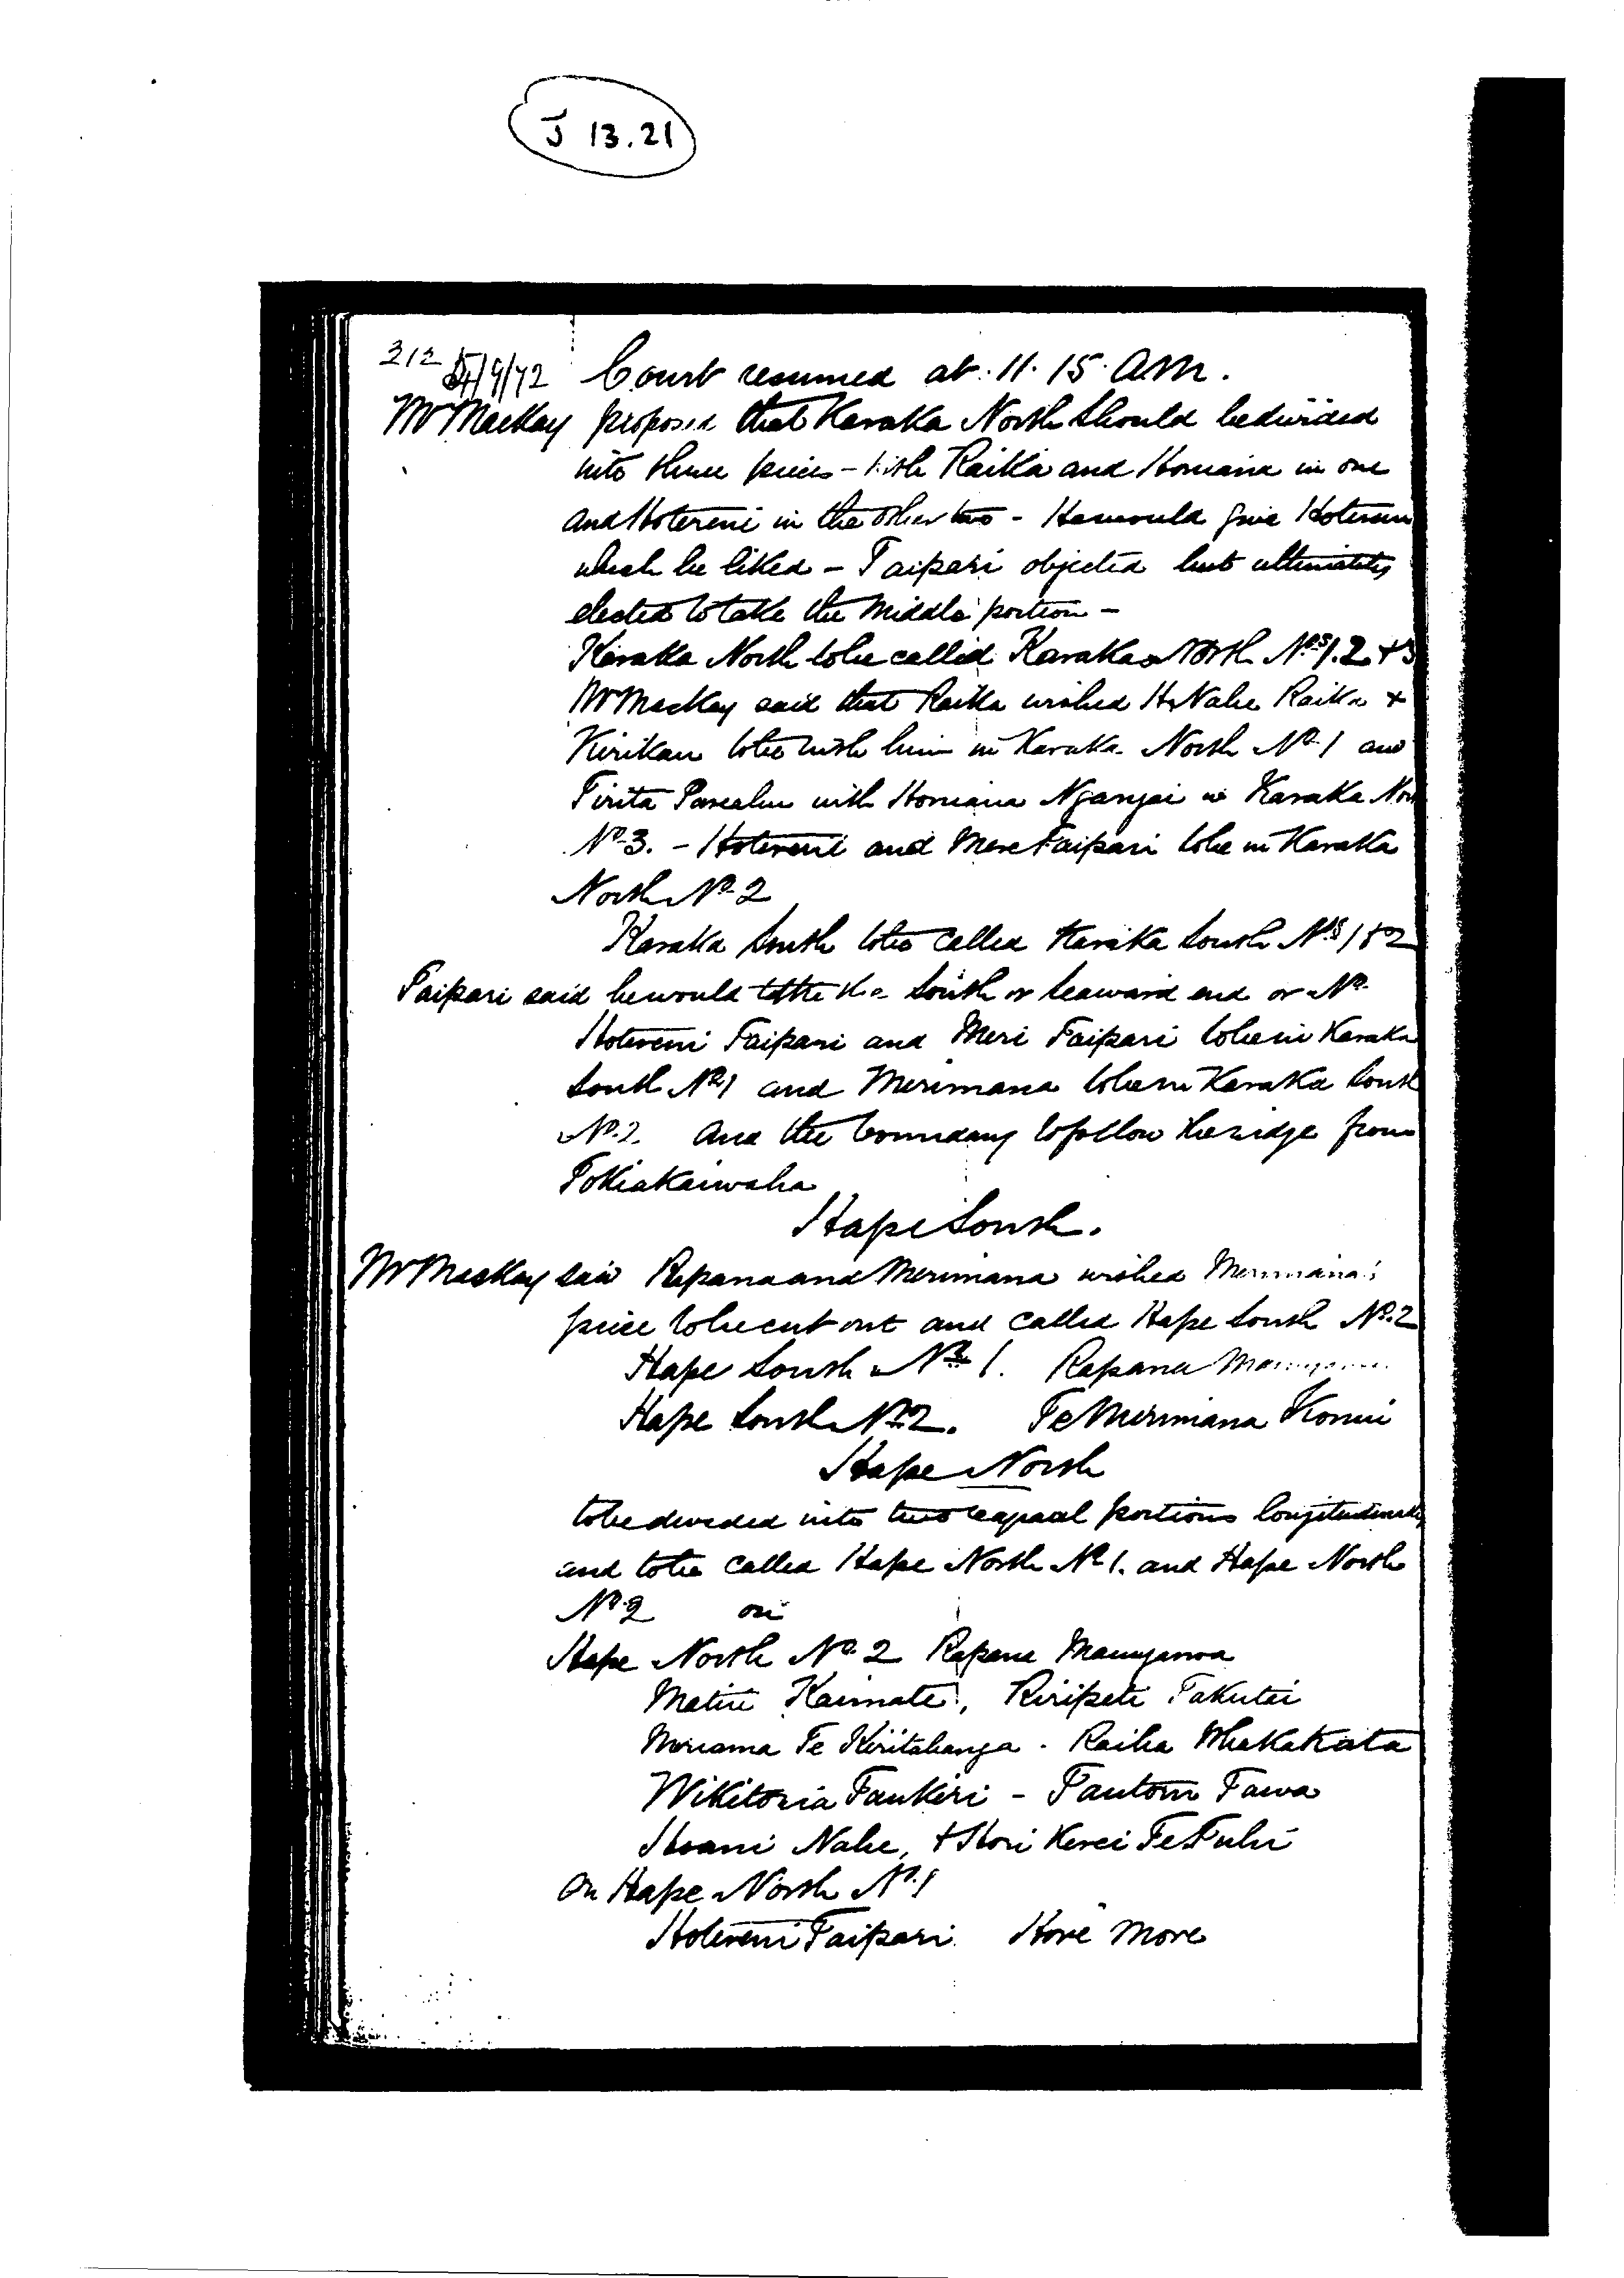 J 13.21
212
/9/72 Court resumed at 11.15. A.M.
Mr Mackay proposed that Karaka North should be divided
into three pieces - with Raika and Homana in one
and Hotereni in the other two - He would give Hotereni
which he liked - Taipari objected but ultimately
elected to take the middle portion -
Karaka North to be called Karaka North Nos 1. 2 + 3
Mr Mackay said that Raika wished H. Nahe Raika +
Kirikau to be with him in Karaka North No 1 and
Tirita with Homana Ngangai in Karaka Nor
No 3. - Hotereni and Mere Taipari to be in Karaka
North No 2
Karaka South to be called Karaka South Nos 1 & 2
Taipari said he would take the South or Seaward end or No
Hotereni Taipari and Meri Taipari to be in Karaka
South No 1 and Merimana to be in Karaka South
No. 2. And the boundary to follow the ridge from
Tokiakaiwaha
Hape South.
Mr Mackay said Rapana and Merimana wished Merimana's
piece to be cut out and called Hape South No. 2
Hape South No 1. Rapana
Hape South No 2. Te Merimana Konui
Hape North
to be divided into two equal portions longitudinally
and to be called Hape North No 1. and Hape North
No 2 on
Hape North No 2 Rapana Maunganoa
Matiu Kaimate, Kiripeti Takutai
Miriama Te Kiritahanga . Raiha Whakakata
Wikitoria Taukiri - Tautoru Tawa
Hoani Nahe, + Hori Kerei Te Tuhi
On Hape North No. 1
Hotereni Taipari Hore More